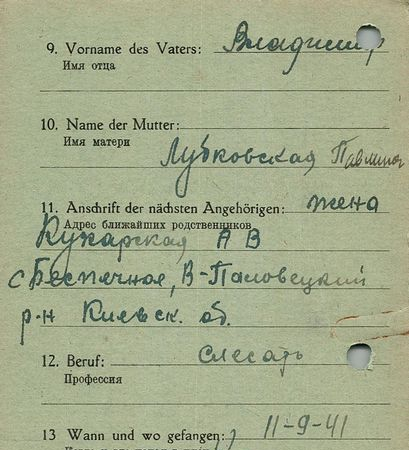 9. Vorname des Vaters: Владимир
Имя отца
10. Name der Mutter:
Имя матери
Лубковская Павлина
11. Anschrift der nächsten Angehörigen: жена
Адрес ближайших родственников
Кухарская А В
с Беспечное, В-Половецкий
р-н Киевск. об.
12. Beruf: слесарь
Профессия
13 Wann und wo gefangen: 11-9-41